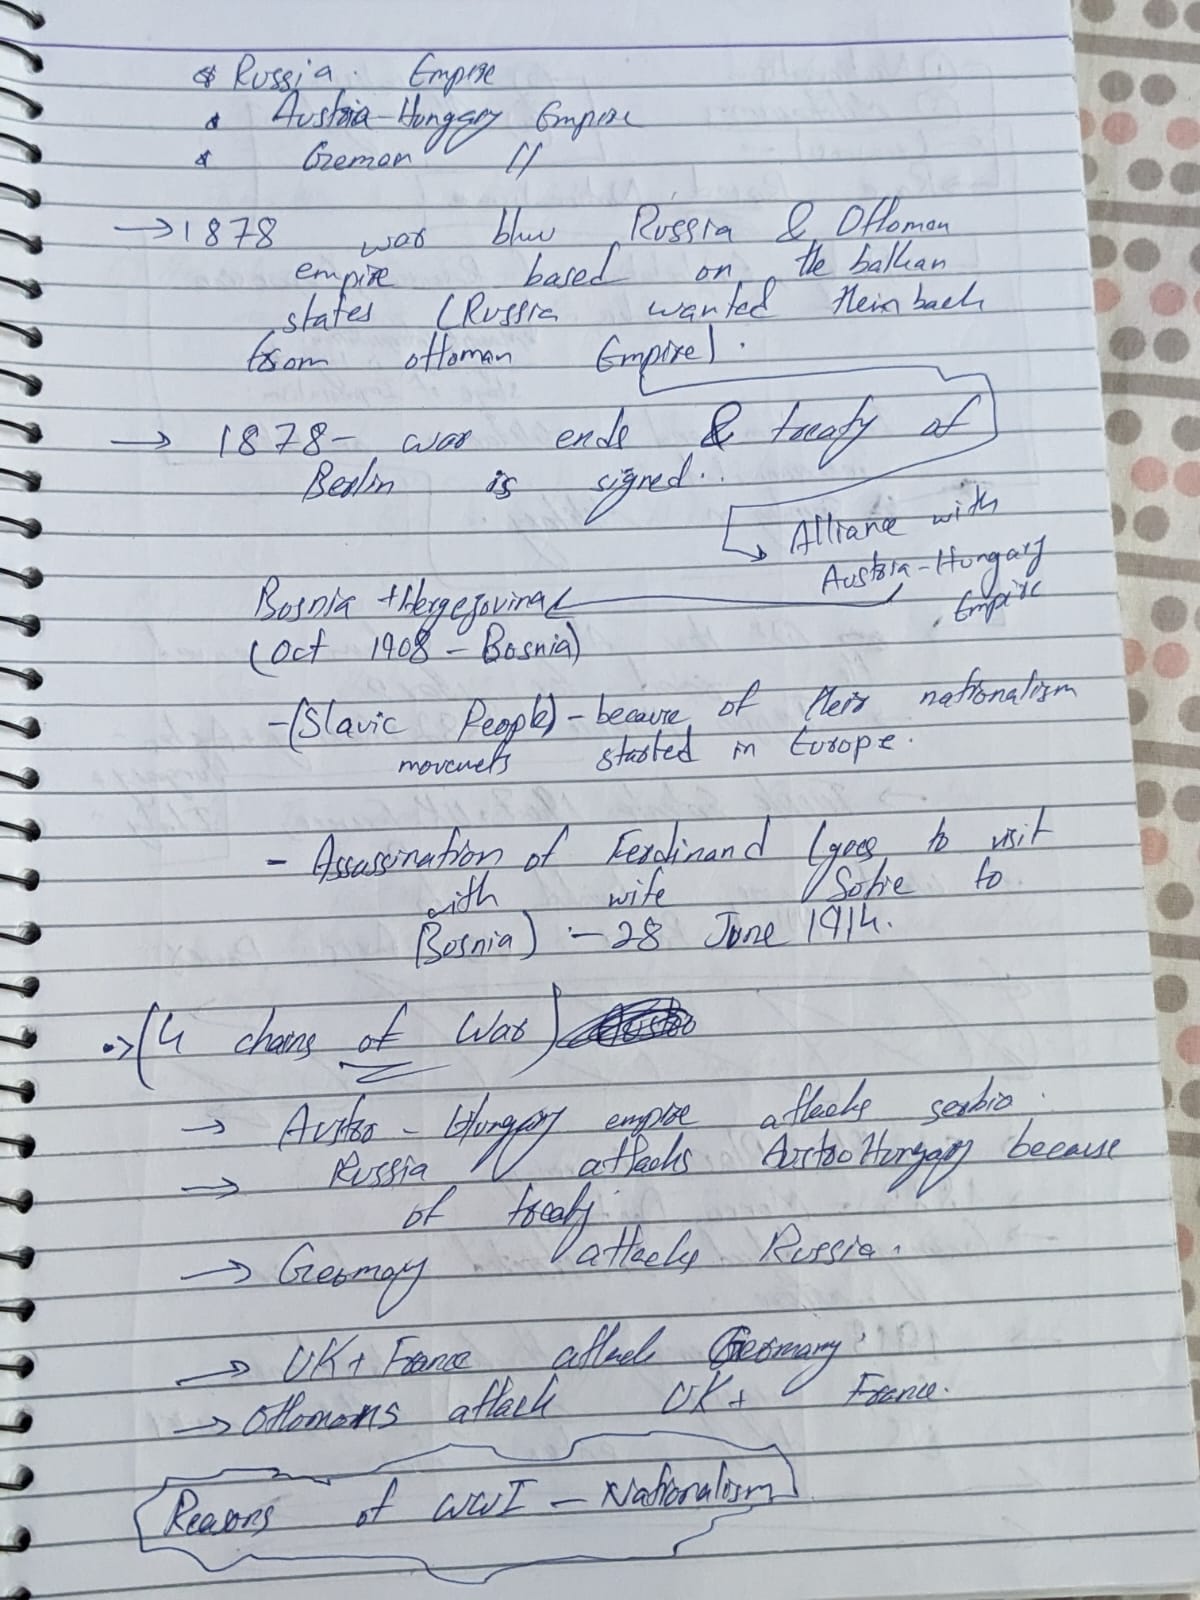 * Russia. Empire
* Austria-Hungary Empire
* German //
→ 1878 war btw Russia & Ottoman
empire based on the balkan
states (Russia wanted them back
from ottoman Empire).
→ 1878- war ends & treaty of
Berlin is signed..
Alliance with
Austria-Hungary
Empire
Bosnia + Hergejovina
(Oct 1908 - Bosnia)
-(Slavic People) - because of their nationalism
movemets started in Europe.
- Assassination of Ferdinand (goes to visit
with wife Sofie to
Bosnia) - 28 June 1914.
→ (4 chains of War)
→ Austro - Hungary empire attacks serbia.
→ Russia attacks Austro Hungary because
of treaty
→ Germay attacks Russia.
→ UK + France attack Germany
→ Ottomans attack UK + France.
Reasons of WWI - Nationalism